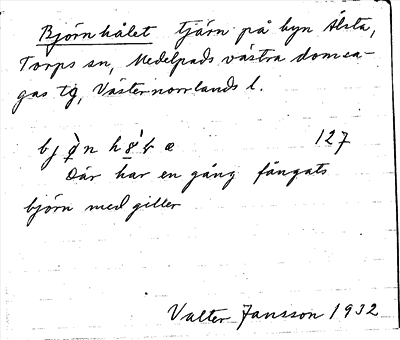 Björnhålet tjärn på byn Ålsta,
Torps sn, Medelpads västra domsa-
gas tg, Västernorrlands l.
127
Där har en gång fångats
björn med giller
Valter Jansson 1932